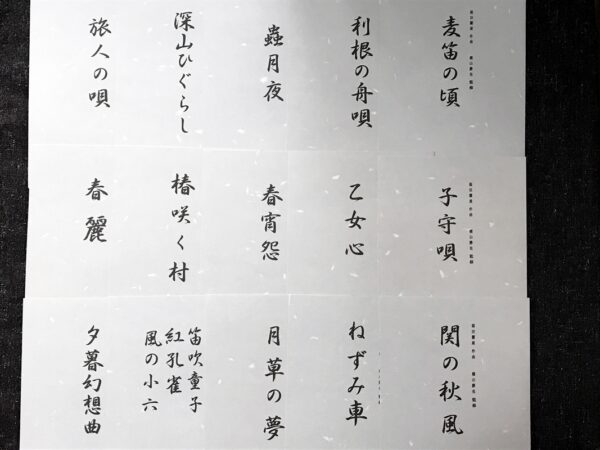 麦笛の頃
利根の舟唄
蟲月夜
深山ひぐらし
旅人の唄
子守唄
乙女心
春宵怨
椿咲く村
春麗
関の秋風
ねずみ車
月草の夢
笛吹童子
紅孔雀
風の小六
夕暮幻想曲